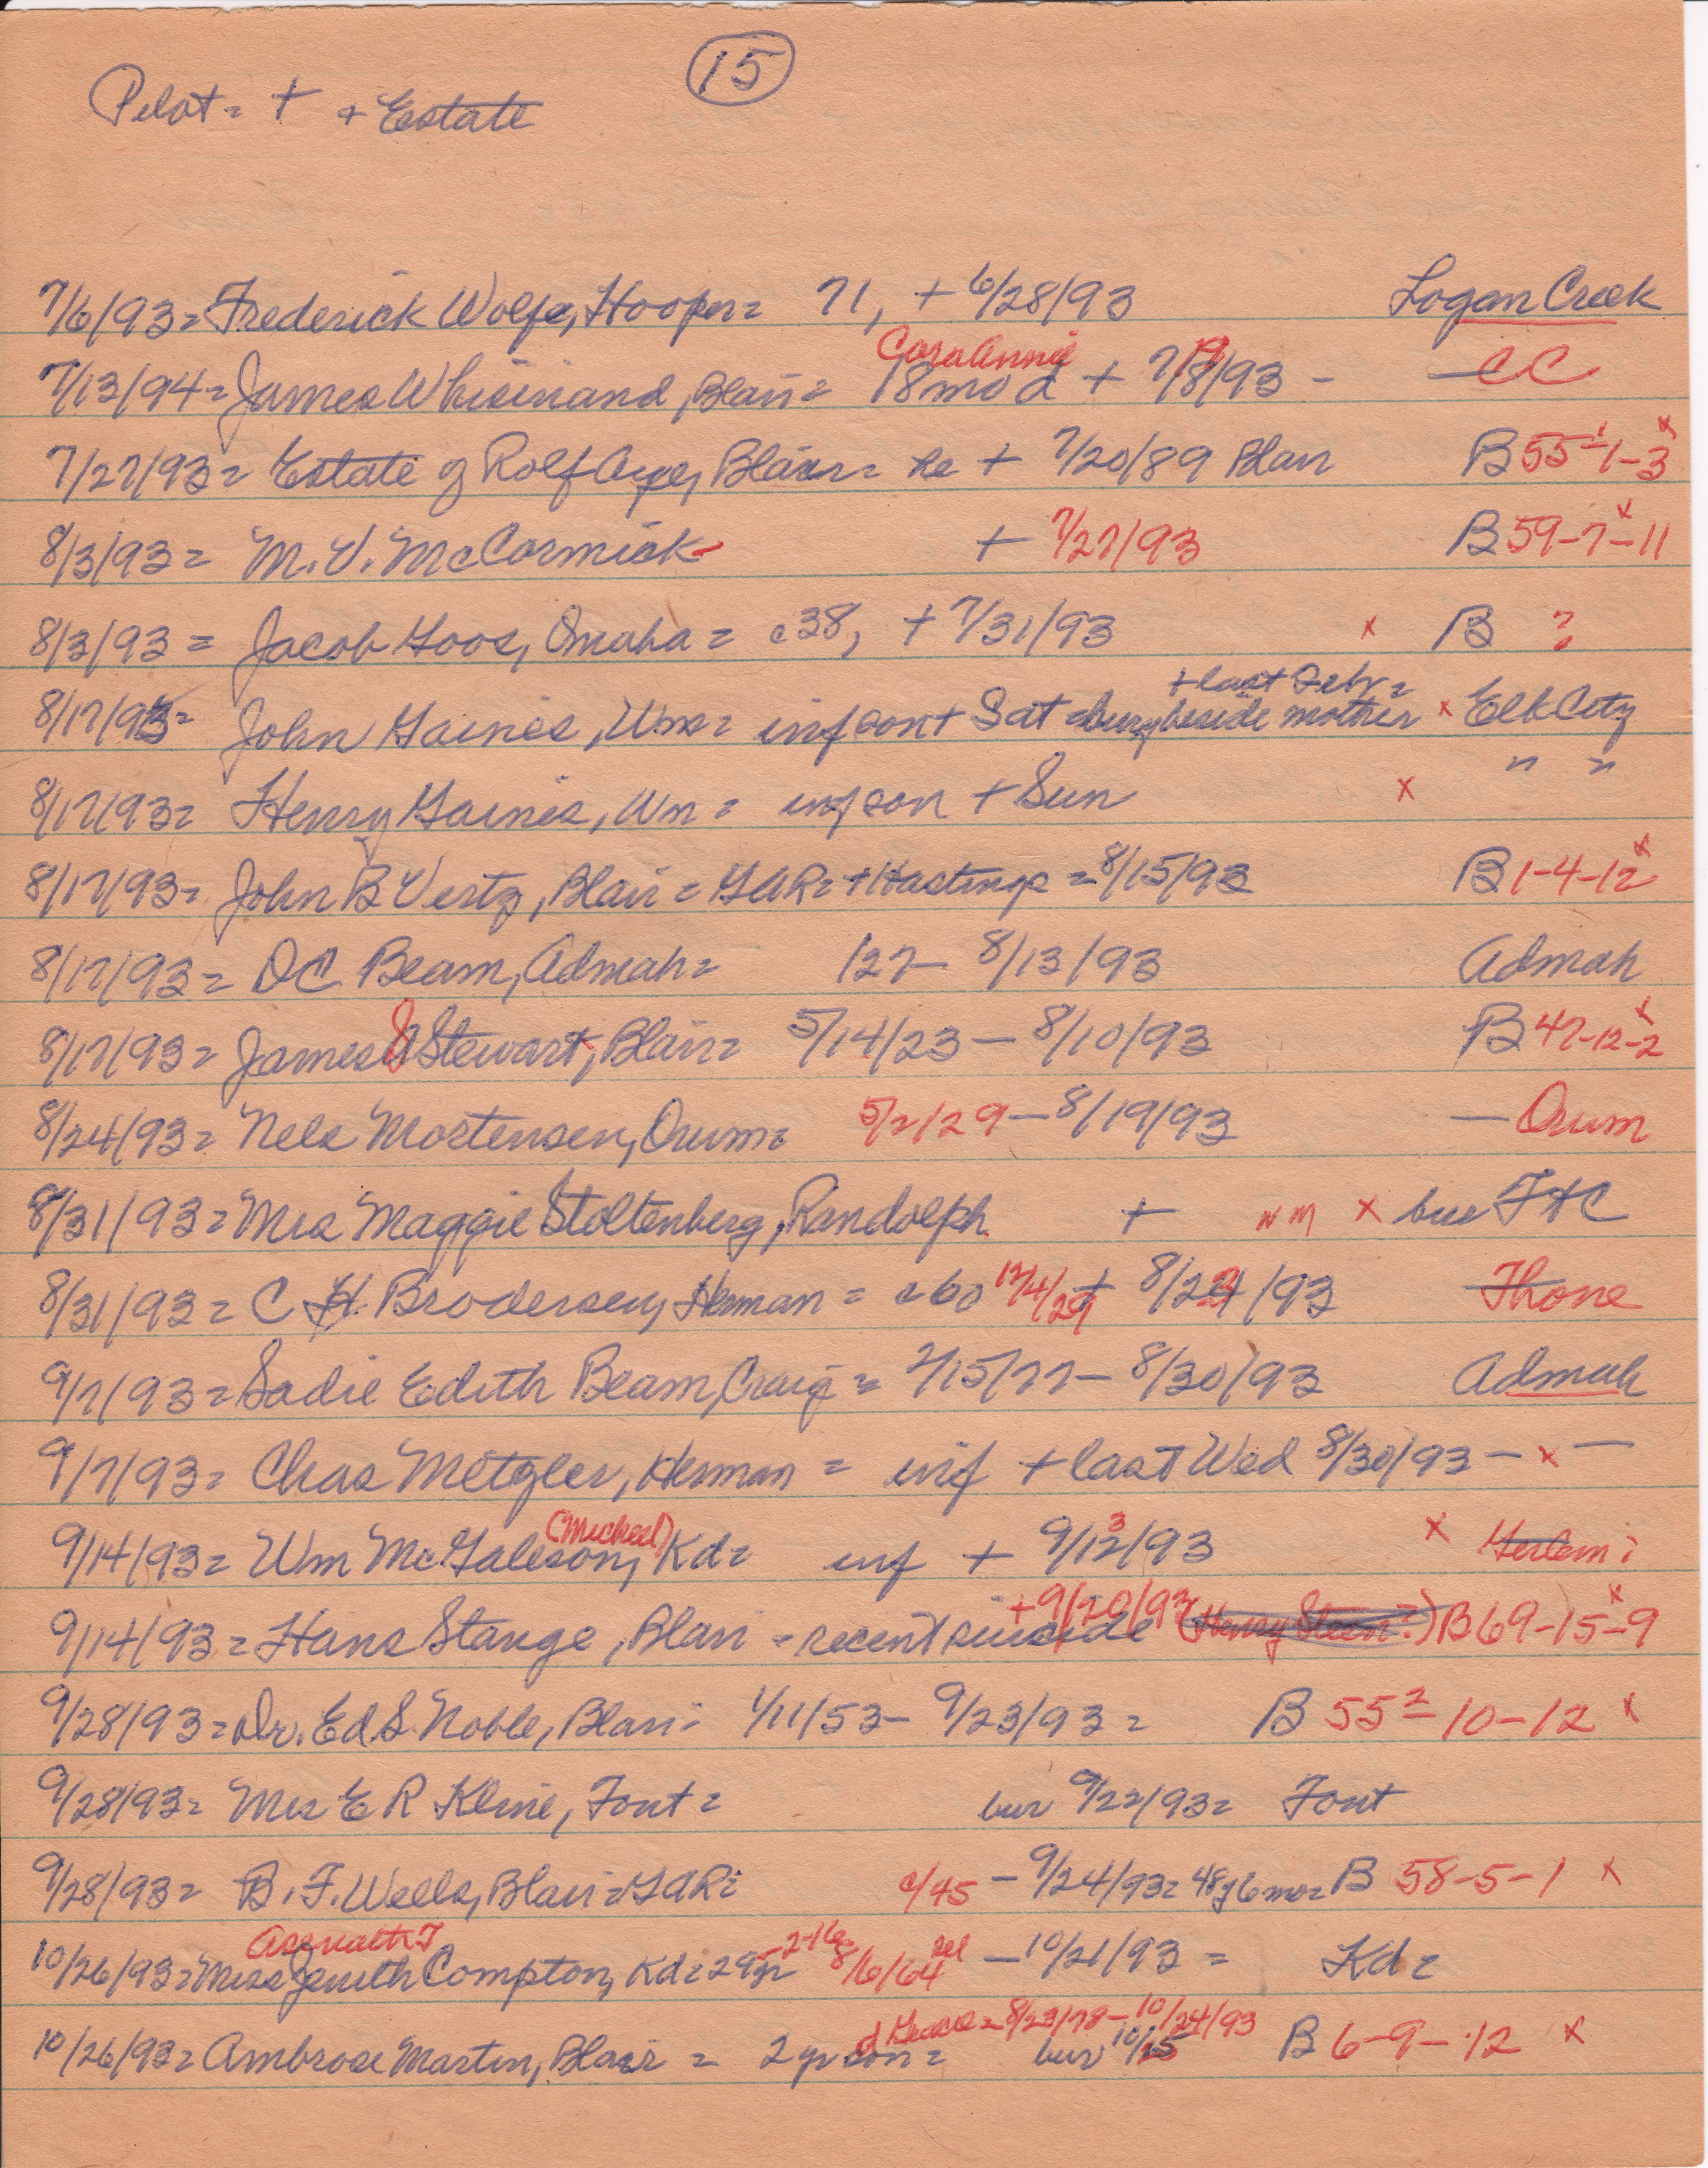 15
Pilot = + + Estate
7/6/93 = Frederick Wolfe, Hooper = 71, + 6/28/93 Logan Creek
Cora Annie 19
7/13/94 = James Whisinand, Blair = 18 mo d + 7/8/93 - — CC
7/27/93 = Estate of Rolf, Blair = he + 7/20/89 Blair B 55¹-1-3 x
8/3/93 = M. V. McCormick + 7/27/93 B 59-7-11 x
8/3/93 = Jacob Goos, Omaha = c38, + 7/31/93 x B ?
+ last Febr =
8/17/93 = John Gaines, Wm = inf son + Sat = bury beside mother x Elk City
8/17/93 = Henry Gaines, Wn = inf son + Sun x " "
8/17/93 = John B Vertz, Blair = GAR = + Hastings = 8/15/93 B 1-4-12 x
8/17/93 = DC Beam, Admah = /27 - 8/13/93 Admah
8/17/93 = James S Stewart, Blair = 5/14/23 - 8/10/93 B 47-12-2 x
8/24/93 = Nels Mortensen, Orum = 5/2/29 - 8/19/93 — Orum
8/31/93 = Mrs Maggie Stoltenberg, Randolph + NM x bur Ft C
8/31/93 = C H. Brodersen, Herman = c60 12/4/29 + 8/24/93 Thone
9/7/93 = Sadie Edith Beam, Craig = 2/15/77 - 8/30/93 Admah
9/7/93 = Chas Metzler, Herman = inf + last Wed 8/30/93 - x —
(Micheel) 3
9/14/93 = Wm McGaleson, Kd = inf + 9/12/93 x
+ 9/10/93
9/14/93 = Hans Stange, Blair - recent suicide (Henry Steen?) B 69-15-9 x
9/28/93 = Dr. Ed S. Noble, Blair = 1/11/53 - 9/23/93 = B 55²-10-12 x
9/28/93 = Mrs E R Kline, Font = bur 9/22/93 = Font
9/28/93 = B. F. Wells, Blair = GAR = c/45 - 9/24/93 = 48y 6mo = B 58-5-1 x
Asenath J 2-16
10/26/93 = Miss Zenith Compton, Kd = 29yr 8/6/64 - 10/21/93 = Kd =
d Grace = 8/23/78 - 10/24/93
10/26/93 = Ambrose Martin, Blair = 2 yr son = bur 10/25 B 6-9-12 x